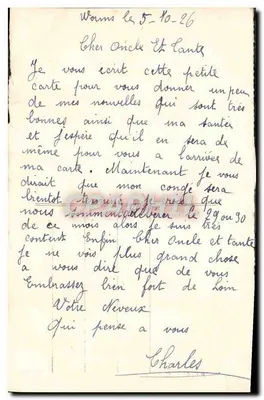 Worms le 5-10-26
Cher Oncle Et Tante
Je vous ecrit cette petite
carte pour vous donner un peu
de mes nouvelles qui sont très
bonnes ainsi que ma santer
et j'espère qu'il en sera de
même pour vous a l'arriver de
ma carte. Maintenant Je vous
dirait que mon congé sera
bientot
nous le 29 ou 30
de ce mois alors je suis très
content Enfin Cher Oncle et tante
Je ne vois plus grand chose
a vous dire que de vous
Embrasser bien fort de Loin
Votre Neveux
Qui pense a vous
Charles